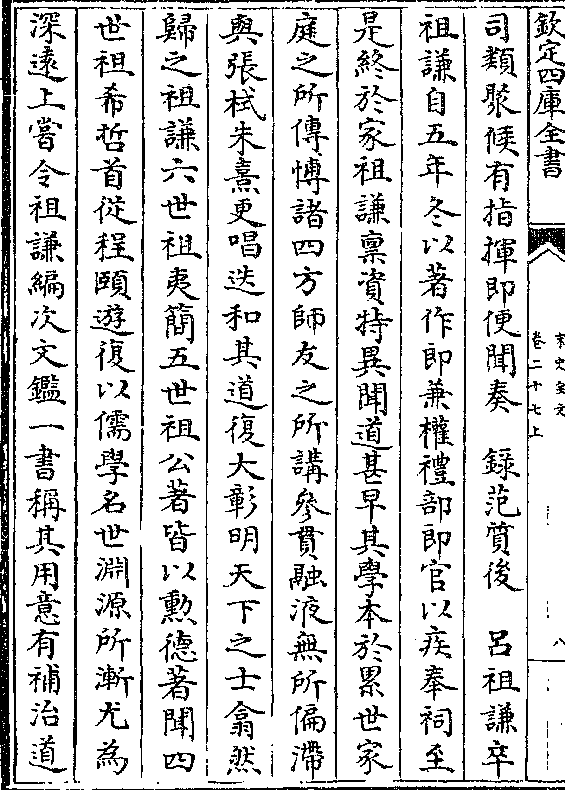 欽定四庫全書
宋史全文
卷二十七上
八
司類聚候有指揮即便聞奏　錄范質後　呂祖謙卒
祖謙自五年冬以著作郎兼權禮部郎官以疾奉祠至
是終於家祖謙稟資特異聞道甚早其學本於累世家
庭之所傳博諸四方師友之所講參貫融液無所偏滯
與張栻朱熹更唱迭和其道復大彰明天下之士翕然
歸之祖謙六世祖夷簡五世祖公著皆以勲德著聞四
世祖希哲首從程頤遊復以儒學名世淵源所漸尤為
深遠上嘗令祖謙編次文鑑一書稱其用意有補治道